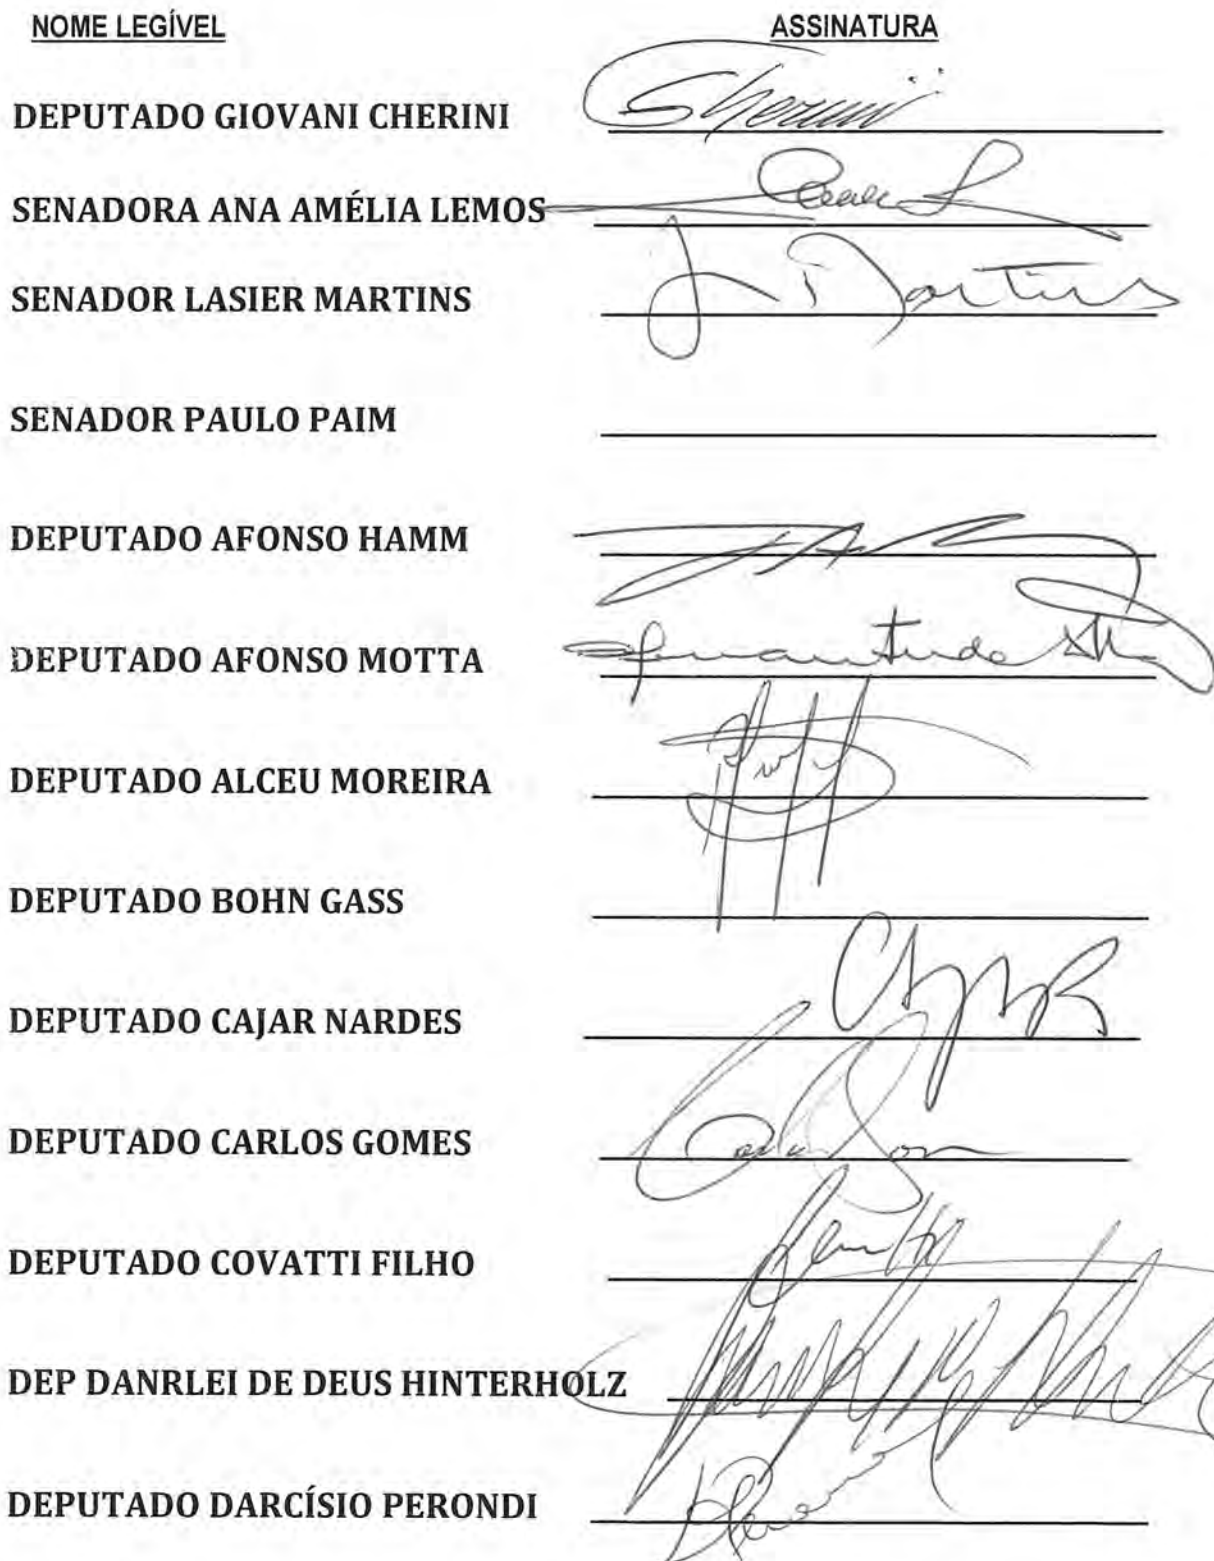 NOME LEGÍVEL ASSINATURA
DEPUTADO GIOVANI CHERINI Cherini
SENADORA ANA AMÉLIA LEMOS
SENADOR LASIER MARTINS L Martins
SENADOR PAULO PAIM
DEPUTADO AFONSO HAMM
DEPUTADO AFONSO MOTTA
DEPUTADO ALCEU MOREIRA
DEPUTADO BOHN GASS
DEPUTADO CAJAR NARDES
DEPUTADO CARLOS GOMES
DEPUTADO COVATTI FILHO
DEP DANRLEI DE DEUS HINTERHOLZ
DEPUTADO DARCÍSIO PERONDI